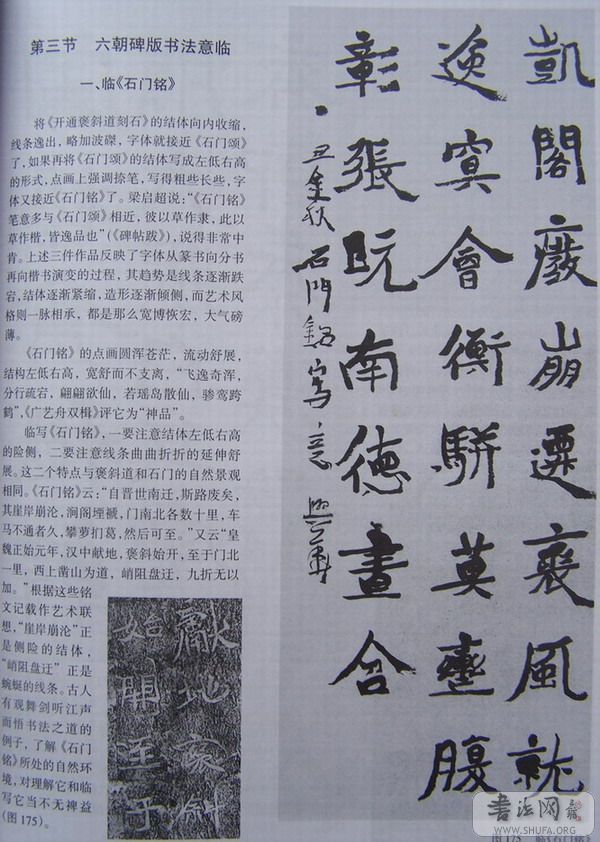 第三节 六朝碑版书法意临
一、临《石门铭》
将《开通褒斜道刻石》的结体向内收缩,
线条逸出,略加波磔,字体就接近《石门颂》
了,如果再将《石门颂》的结体写成左低右高
的形式,点画上强调捺笔,写得粗些长些,字
体又接近《石门铭》了。梁启超说:“《石门铭》
笔意多与《石门颂》相近,彼以草作隶,此以
草作楷,皆逸品也”(《碑帖跋》),说得非常中
肯。上述三件作品反映了字体从篆书向分书
再向楷书演变的过程,其趋势是线条逐渐跌
宕,结体逐渐紧缩,造形逐渐倾侧,而艺术风
格则一脉相承,都是那么宽博恢宏,大气磅
薄。
《石门铭》的点画圆浑苍茫,流动舒展,
结构左低右高,宽舒而不支离,“飞逸奇浑,
分行疏宕,翩翩欲仙,若瑶岛散仙,骖鸾跨
鹤”,《广艺舟双楫》评它为“神品”。
临写《石门铭》,一要注意结体左低右高
的险侧,二要注意线条曲曲折折的延伸舒
展。这二个特点与褒斜道和石门的自然景观
相同。《石门铭》云:“自晋世南迁,斯路废矣,
其崖岸崩沦,涧阁堙褫,门南北各数十里,车
马不通者久,攀萝扪葛,然后可至。”又云“皇
魏正始元年,汉中献地,褒斜始开,至于门北
一里,西上凿山为道,峭阻盘迂,九折无以
加。”根据这些铭
文记载作艺术联
想,“崖岸崩沦”正
是侧险的结体,
“峭阻盘迂”正是
蜿蜒的线条。古人
有观舞剑听江声
而悟书法之道的
例子,了解《石门
铭》所处的自然环
境,对理解它和临
写它当不无裨益
(图175)。
凱閣廢崩遷喪風就
逸寞會衡駢莫腹
彰張既南德畫含
石門銘寫意
獻地褒斜
始開至于
書法网
WWW.SHUFA.ORG
图175 临《石门铭》